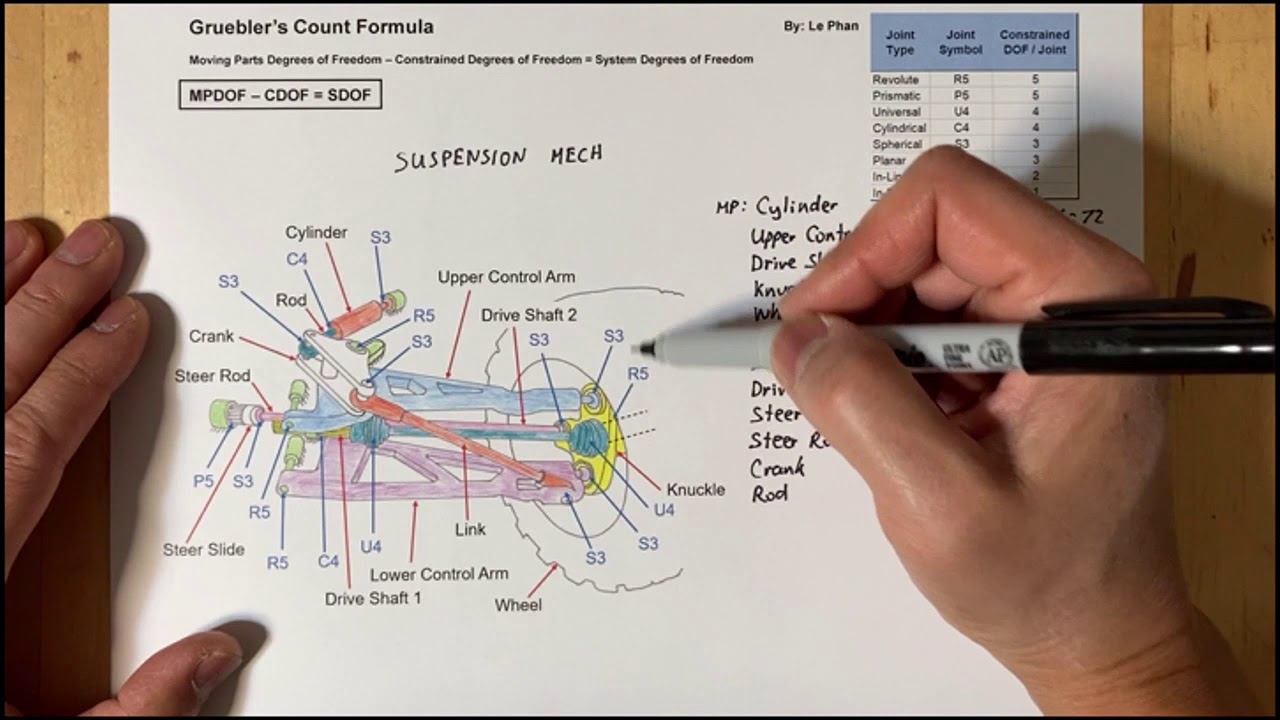 Gruebler's Count Formula
By: Le Phan
Moving Parts Degrees of Freedom – Constrained Degrees of Freedom = System Degrees of Freedom
MPDOF – CDOF = SDOF
Joint Type Joint Symbol Constrained DOF / Joint
Revolute R5 5
Prismatic P5 5
Universal U4 4
Cylindrical C4 4
Spherical S3 3
Planar 3
2
1
SUSPENSION MECH
MP: Cylinder
72
Upper
Drive
Steer
Steer
Crank
Rod
Cylinder
S3
C4
S3
Rod
Upper Control Arm
R5
Drive Shaft 2
Crank
S3
S3
S3
Steer Rod
R5
P5
S3
R5
Knuckle
U4
Steer Slide
R5
C4
U4
Link
S3
S3
Lower Control Arm
Drive Shaft 1
Wheel